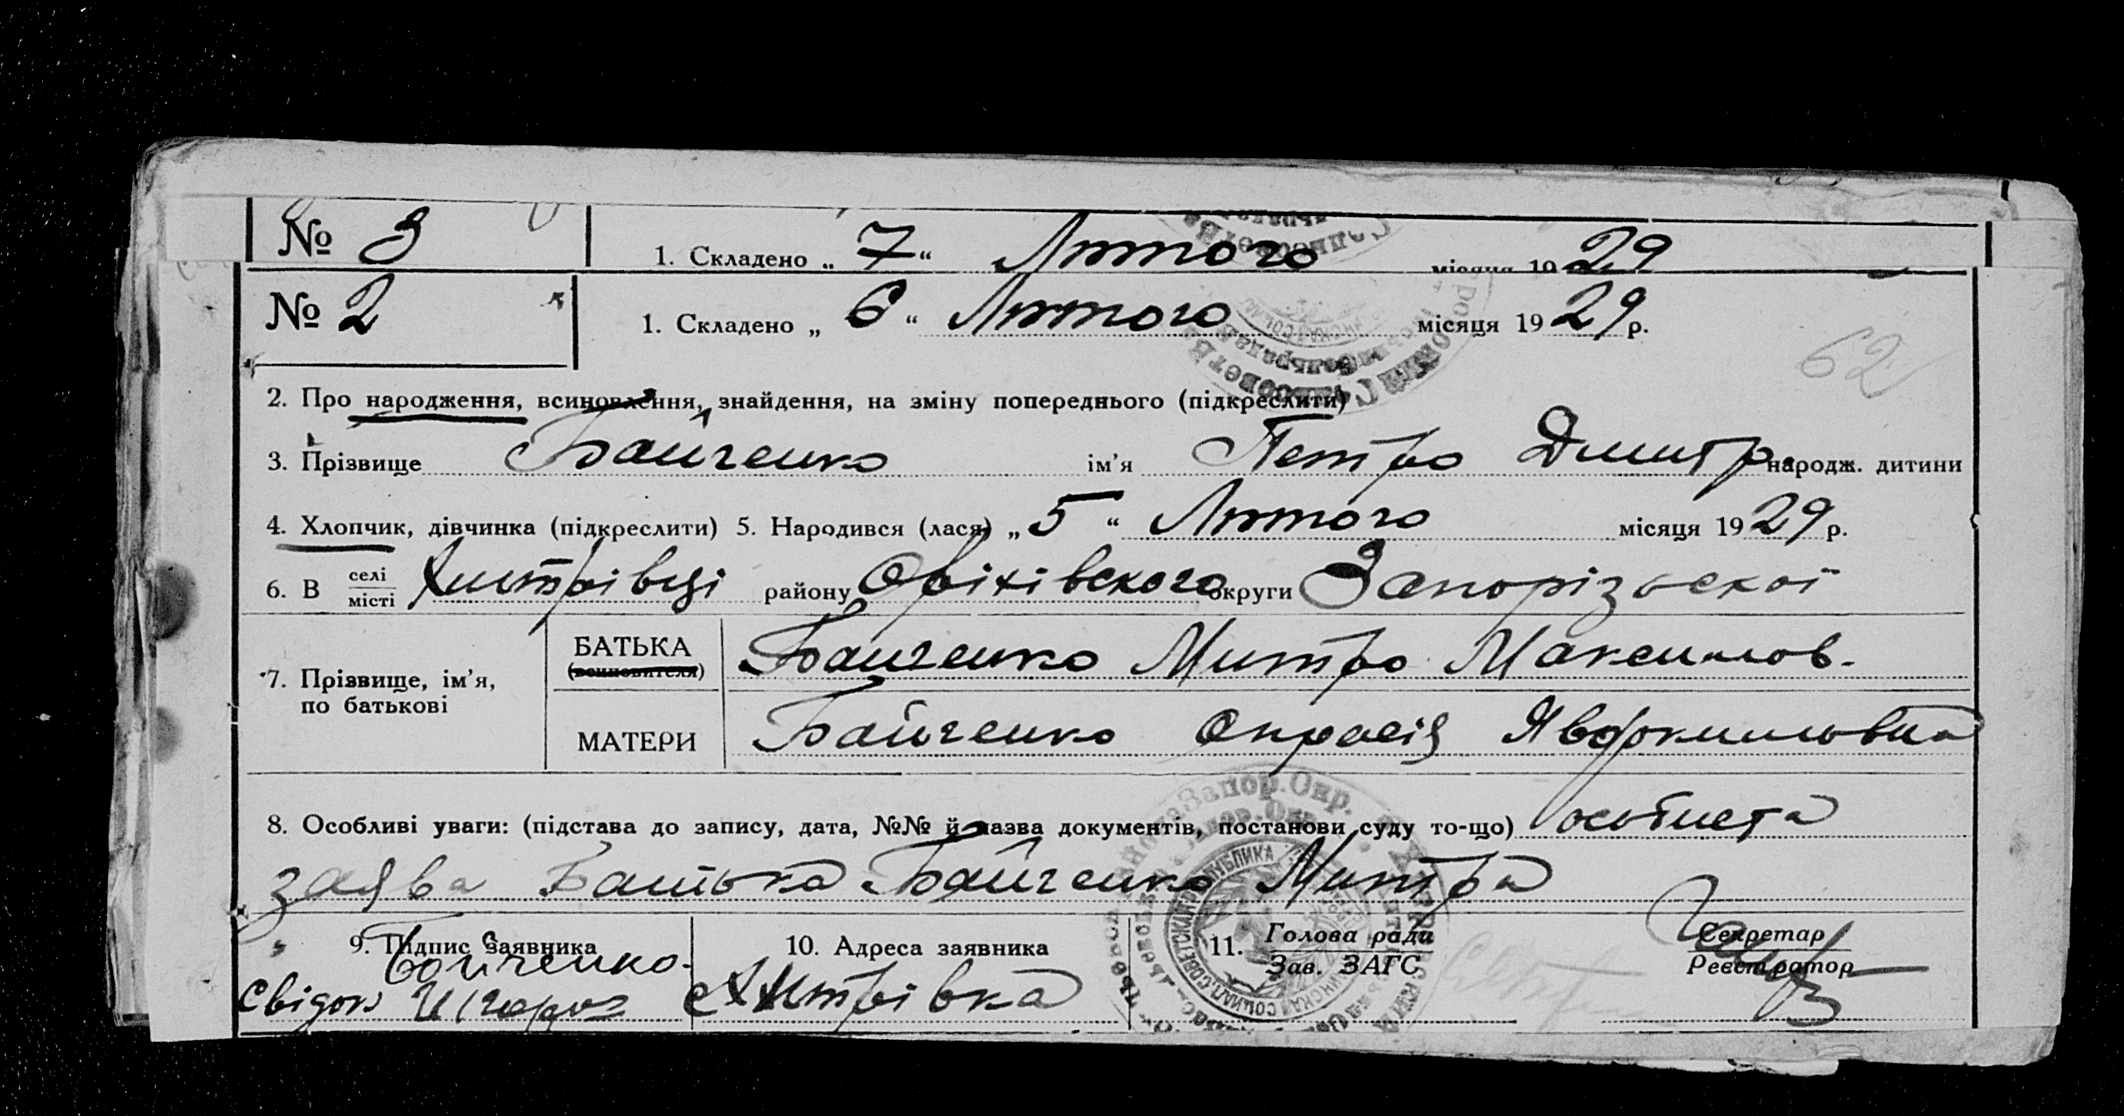 № 3 1. Складено „ 7 “ Лютого місяця 19 29
№ 2 1. Складено „ 6 “ Лютого місяця 19 29 р.
62
2. Про народження, всиновлення, знайдення, на зміну попереднього (підкреслити)
3. Прізвище Байченко ім’я Петро Дмитр. народж. дитини
4. Хлопчик, дівчинка (підкреслити) 5. Народився (лася) „ 5 “ Лютого місяця 19 29 р.
6. В селі місті Хитрівці району Оріхівского округи Запорізьскої
7. Прізвище, ім’я, по батькові
БАТЬКА (всиновителя) Байченко Митро Максимов.
МАТЕРИ Байченко Опрасія
8. Особливі уваги: (підстава до запису, дата, №№ й назва документів, постанови суду то-що) особиста
заява Батька Байченко Митра
9. Підпис заявника 10. Адреса заявника 11. Голова ради Секретар
Зав. ЗАГС Реєстратор
Байченко
Свідок Хитрівка